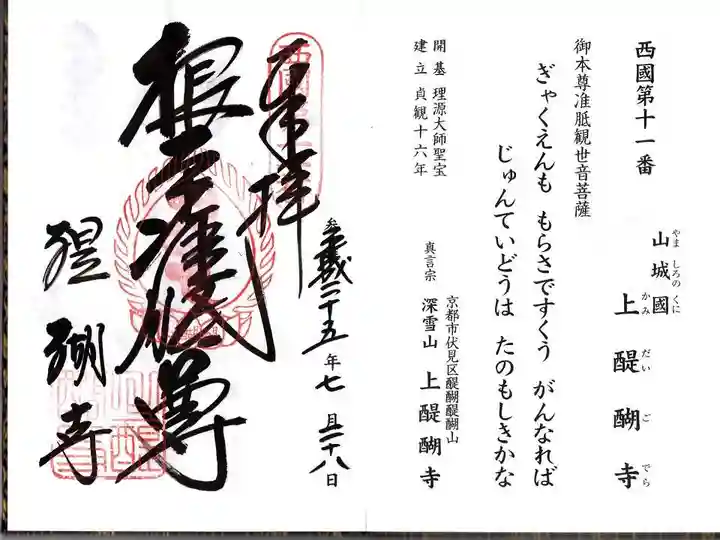 西國第十一番
山城國
やましろのくに
上醍醐寺
かみだいごでら
御本尊准胝観世音菩薩
ぎゃくえんも もらさですくう がんなれば
じゅんていどうは たのもしきかな
開基 理源大師聖宝
建立 貞観十六年
京都市伏見区醍醐醍醐山
真言宗 深雪山 上醍醐寺
奉拝
平成二十五年七月二十八日
准胝尊
醍醐寺